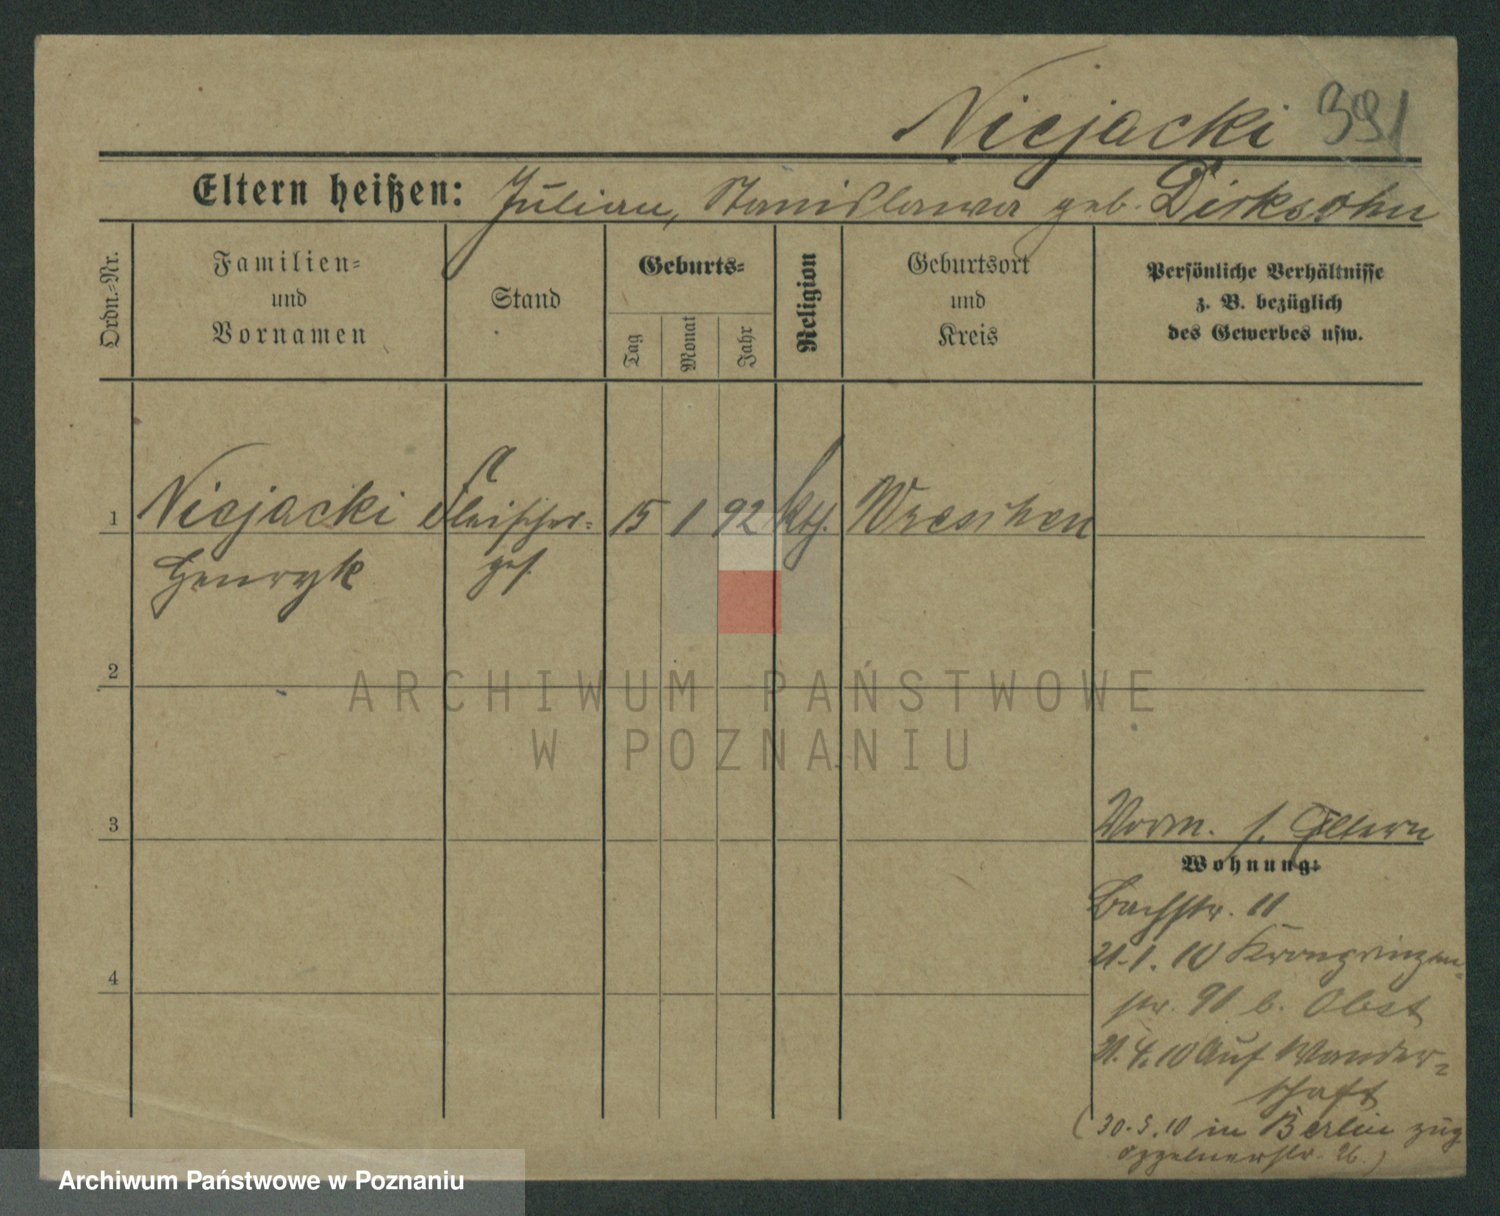 Niejacki 391
Eltern heißen: Julian, Stanislawa geb. Dirksohn
Ordn.-Nr.
Familien- und Vornamen
Stand
Geburts-
Tag
Monat
Jahr
Religion
Geburtsort und Kreis
Persönliche Verhältnisse
z. B. bezüglich
des Gewerbes usw.
1 Niejacki Fleischer- 15 1 92 kth. Wreschen
Henryk ges.
2
3
4
Vorm. s. Eltern
Wohnung:
Bachstr. 11
21.1.10 Kronprinzen-
str. 91 b. Obst
21.4.10 Auf Wander-
schaft
(30.5.10 in Berlin zug
Oppelnerstr. 26.)
ARCHIWUM PAŃSTWOWE
W POZNANIU
Archiwum Państwowe w Poznaniu